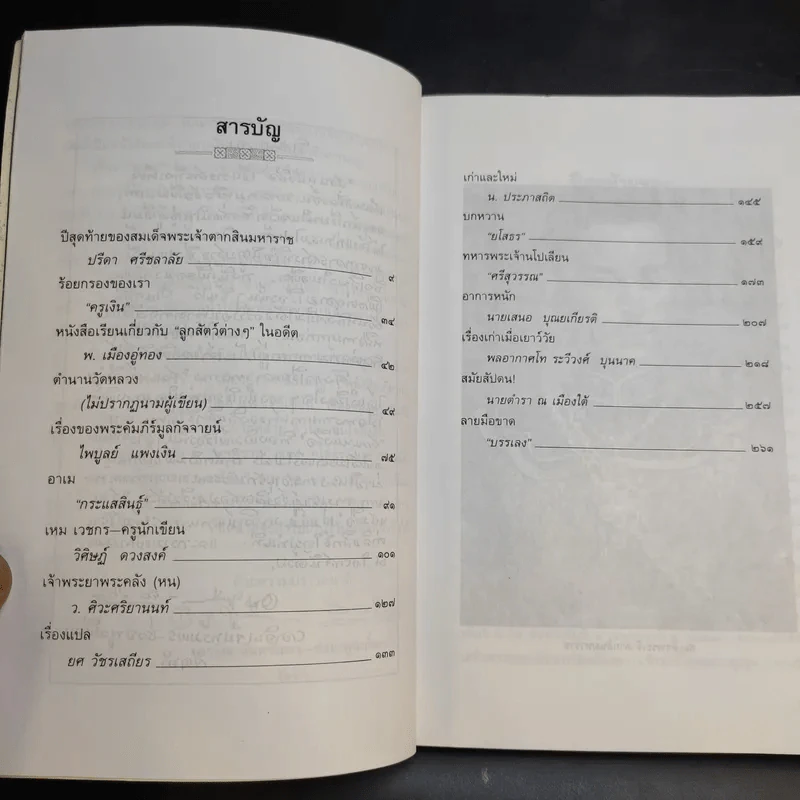 สารบัญ
ปีสุดท้ายของสมเด็จพระเจ้าตากสินมหาราช
ปรีดา ศรีชลาลัย ๙
ร้อยกรองของเรา
“ครูเงิน” ๓๔
หนังสือเรียนเกี่ยวกับ “ลูกสัตว์ต่างๆ” ในอดีต
พ. เมืองอู่ทอง ๔๒
ตำนานวัดหลวง
(ไม่ปรากฏนามผู้เขียน) ๔๙
เรื่องของพระคัมภีร์มูลกัจจายน์
ไพบูลย์ แพงเงิน ๗๕
อาเม
“กระแสสินธุ์” ๙๑
เหม เวชกร—ครูนักเขียน
วิศิษฏ์ ดวงสงค์ ๑๐๑
เจ้าพระยาพระคลัง (หน)
ว. ศิวะศริยานนท์ ๑๒๗
เรื่องแปล
ยศ วัชรเสถียร ๑๓๓
เก่าและใหม่
น. ประภาสถิต ๑๔๕
บกหวาน
“ยโสธร” ๑๕๙
ทหารพระเจ้านโปเลียน
“ศรีสุวรรณ” ๑๗๓
อาการหนัก
นายเสนอ บุณยเกียรติ ๒๐๗
เรื่องเก่าเมื่อเยาว์วัย
พลอากาศโท ระวีวงศ์ บุนนาค ๒๑๘
สมัยสัปดน!
นายตำรา ณ เมืองใต้ ๒๕๗
ลายมือขาด
“บรรเลง” ๒๖๑